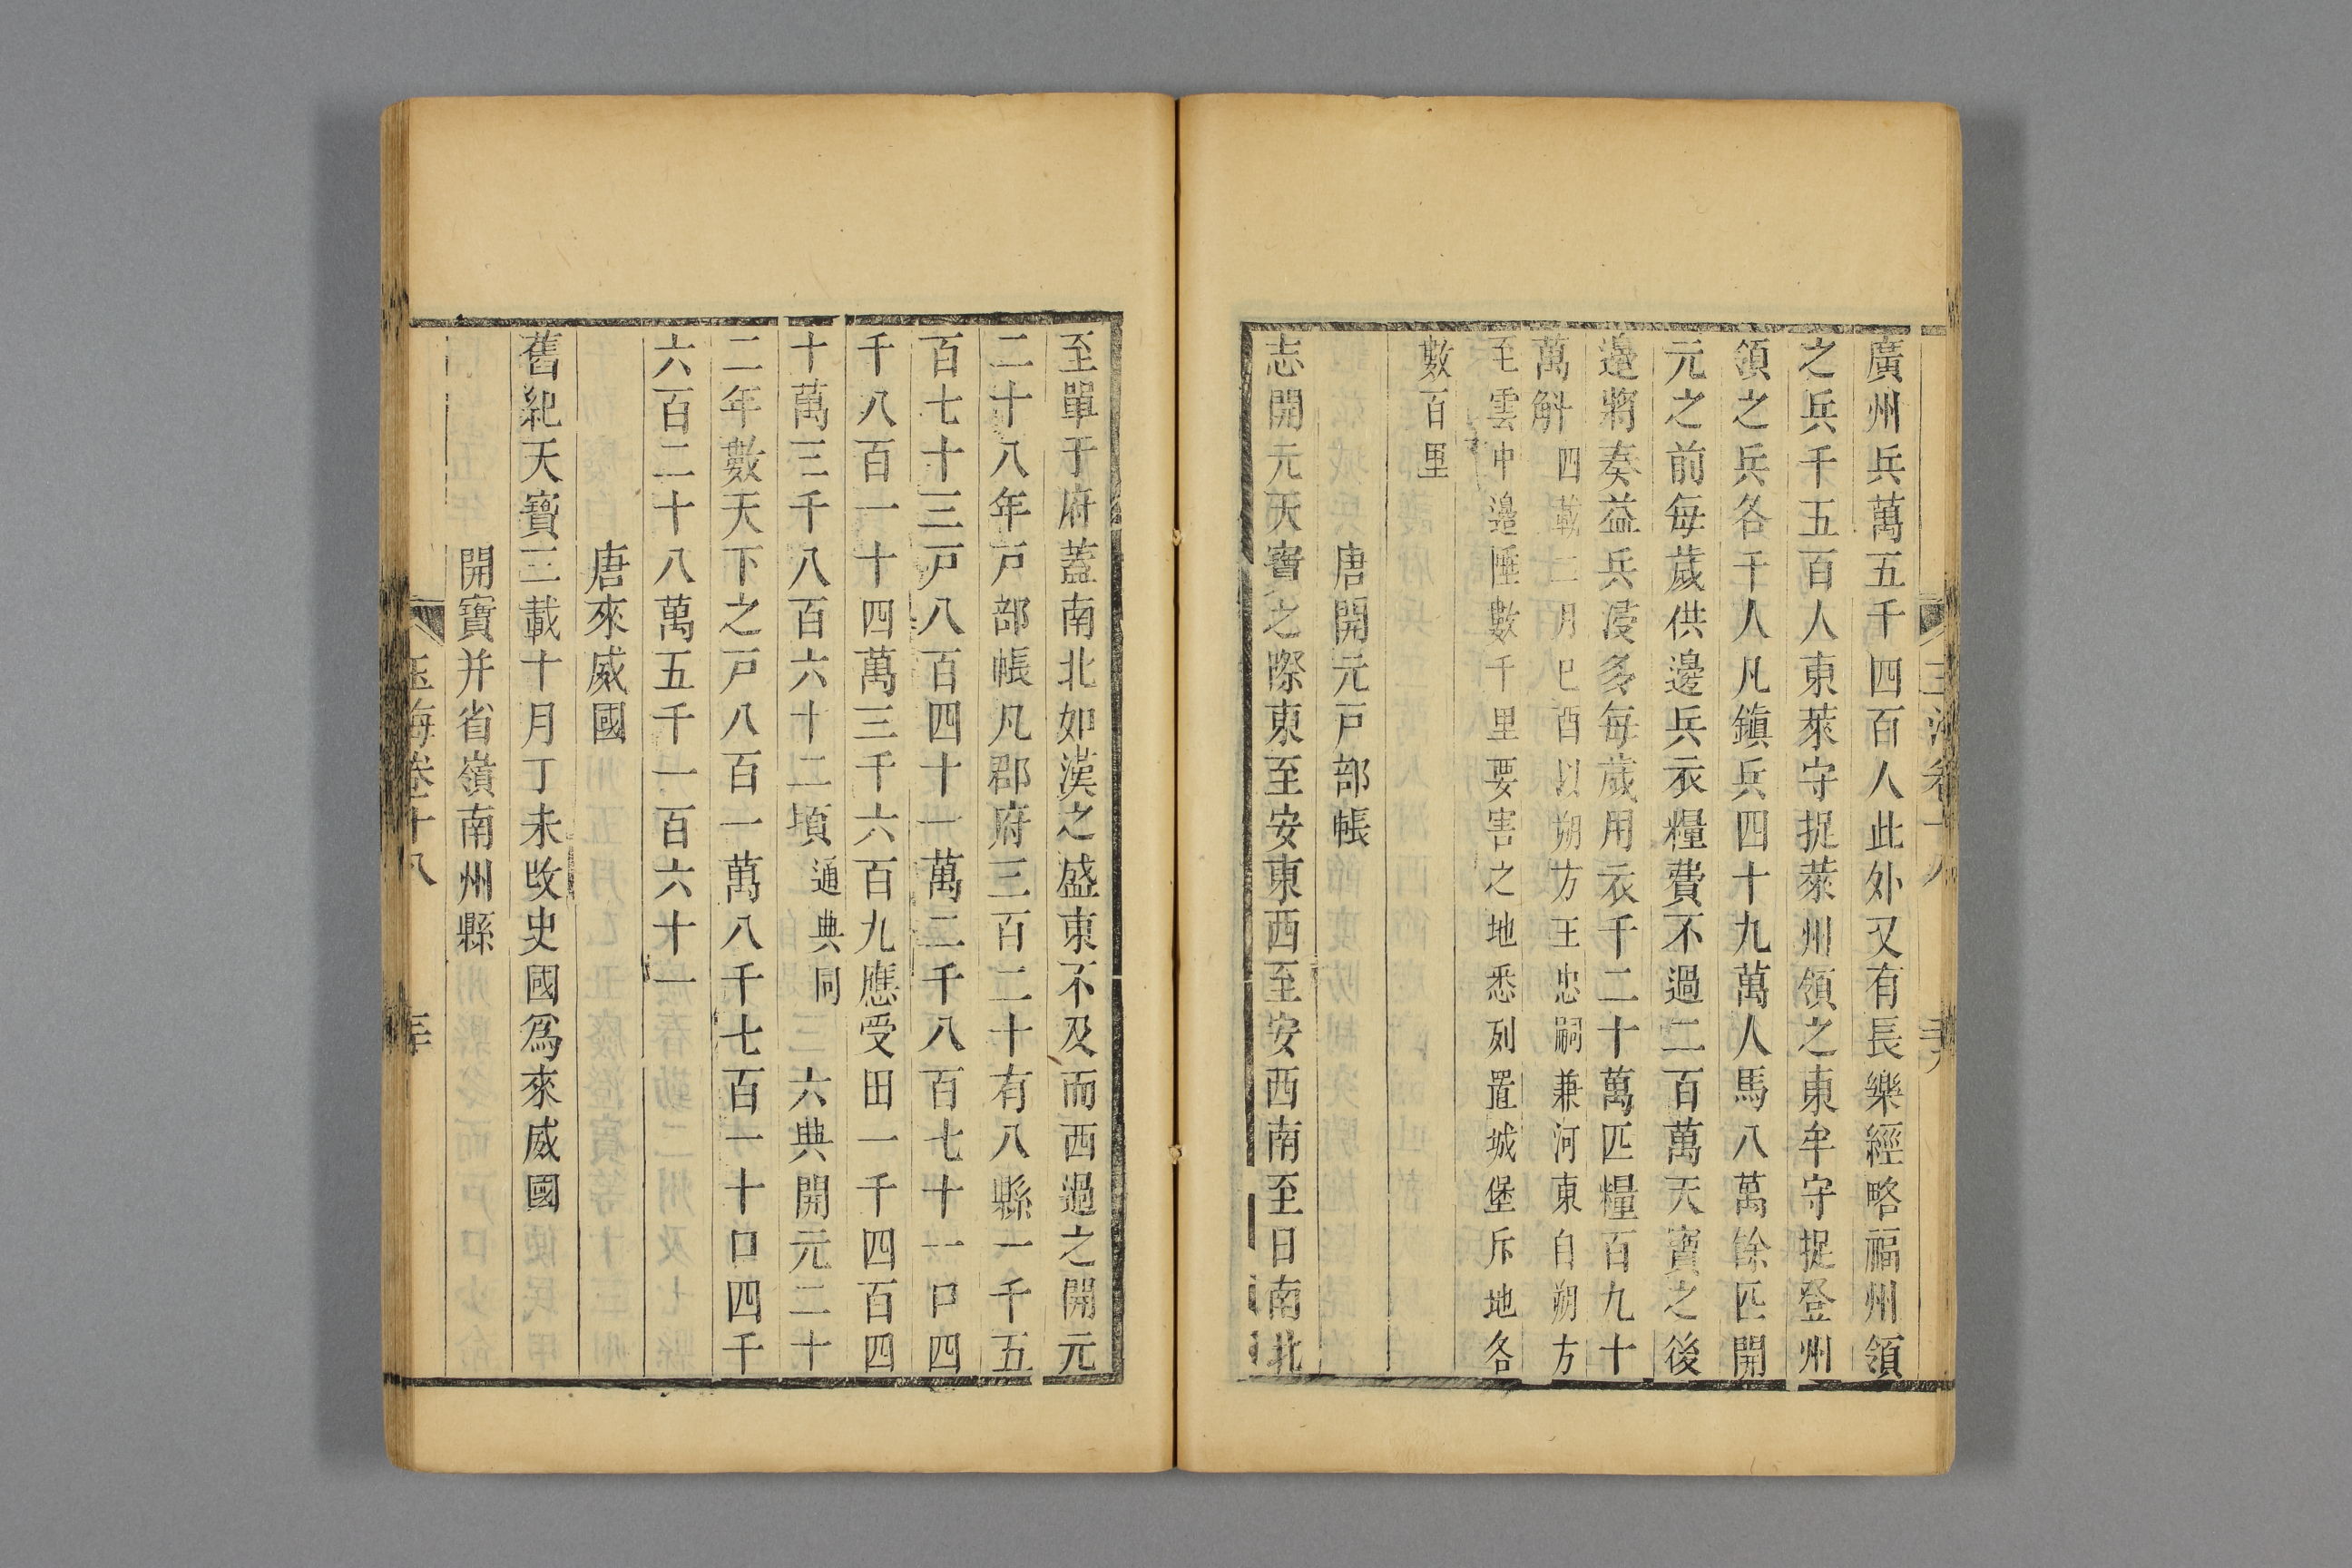 廣州兵萬五千四百人此外又有長樂經略福州領
之兵千五百人東萊守捉萊州領之東牟守捉登州
領之兵各千人凡鎮兵四十九萬人馬八萬餘匹開
元之前每歲供邊兵衣糧費不過二百萬天寶之後
邊將奏益兵浸多每歲用衣千二十萬匹糧百九十
萬斛四載二月巳酉以朔方王忠嗣兼河東自朔方
至雲中邊陲數千里要害之地悉列置城堡斥地各
數百里
唐開元戸部帳
志開元天寶之際東至安東西至安西南至日南北
至單于府蓋南北如漢之盛東不及而西過之開元
二十八年戸部帳凡郡府三百二十有八縣一千五
百七十三戸八百四十一萬二千八百七十一口四
千八百一十四萬三千六百九應受田一千四百四
十萬三千八百六十二頃通典同六典開元二十
二年數天下之戸八百一萬八千七百一十口四千
六百二十八萬五千一百六十一
唐來威國
舊紀天寶三載十月丁未改史國爲來威國
開寶并省嶺南州縣
玉海卷十八